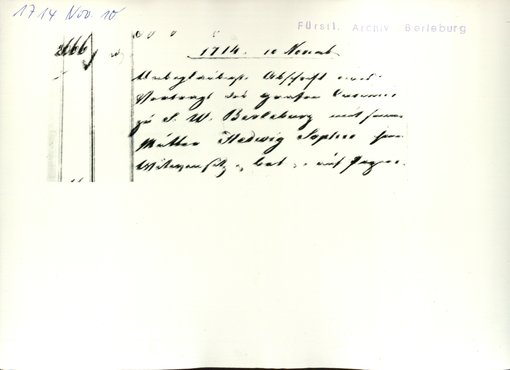 1714 Nov. 10
Fürstl. Archiv Berleburg
2166
1714. 10 Novemb.
Unbeglaubigte Abschrift eines
Vertrags des Grafen Casimir
zu S. W. Berleburg mit seiner
Mutter Hedwig Sophie
Witwensitz, betr.